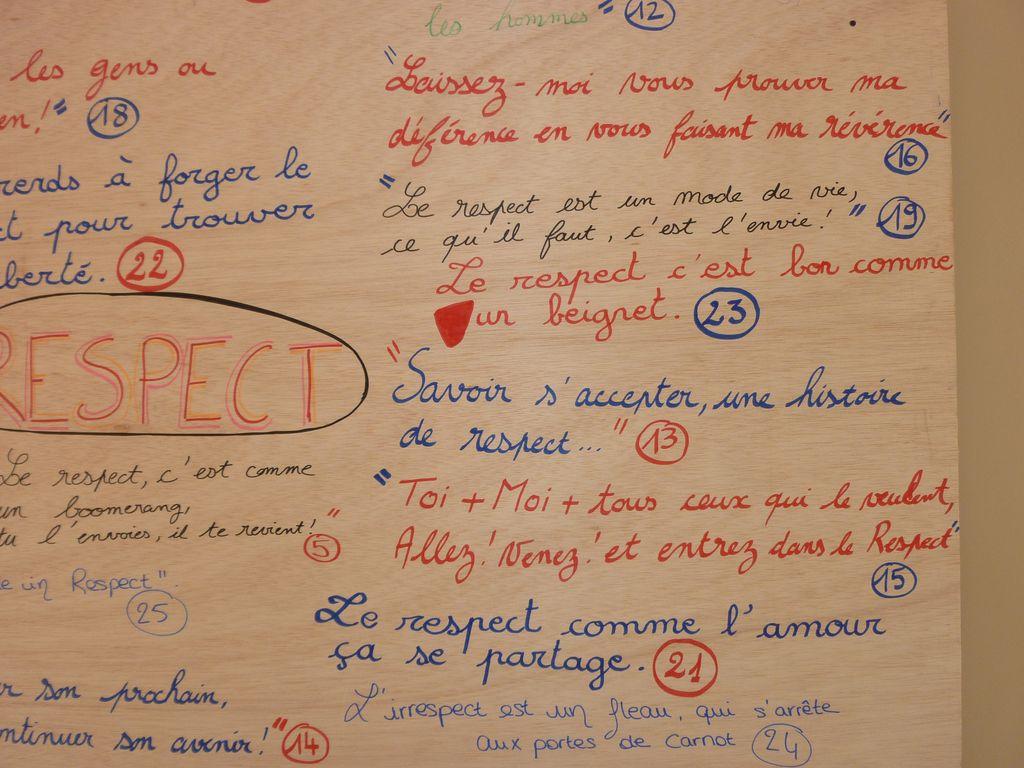 les hommes" 12
les gens ou
en!" 18
rends à forger le
ct pour trouver
berté. 22
RESPECT
Le respect, c'est comme
un boomerang,
tu l'envoies, il te revient!" 5
e un Respect". 25
r son prochain,
ntinuer son avenir!" 14
"Laissez-moi vous prouver ma
déférence en vous faisant ma révérence" 16
"Le respect est un mode de vie,
ce qu'il faut, c'est l'envie!" 19
Le respect c'est bon comme
un beignet. 23
"Savoir s'accepter, une histoire
de respect..." 13
"Toi + Moi + tous ceux qui le veulent,
Allez! Venez! et entrez dans le Respect" 15
Le respect comme l'amour
ça se partage. 21
L'irrespect est un fleau, qui s'arrête
aux portes de Carnot 24